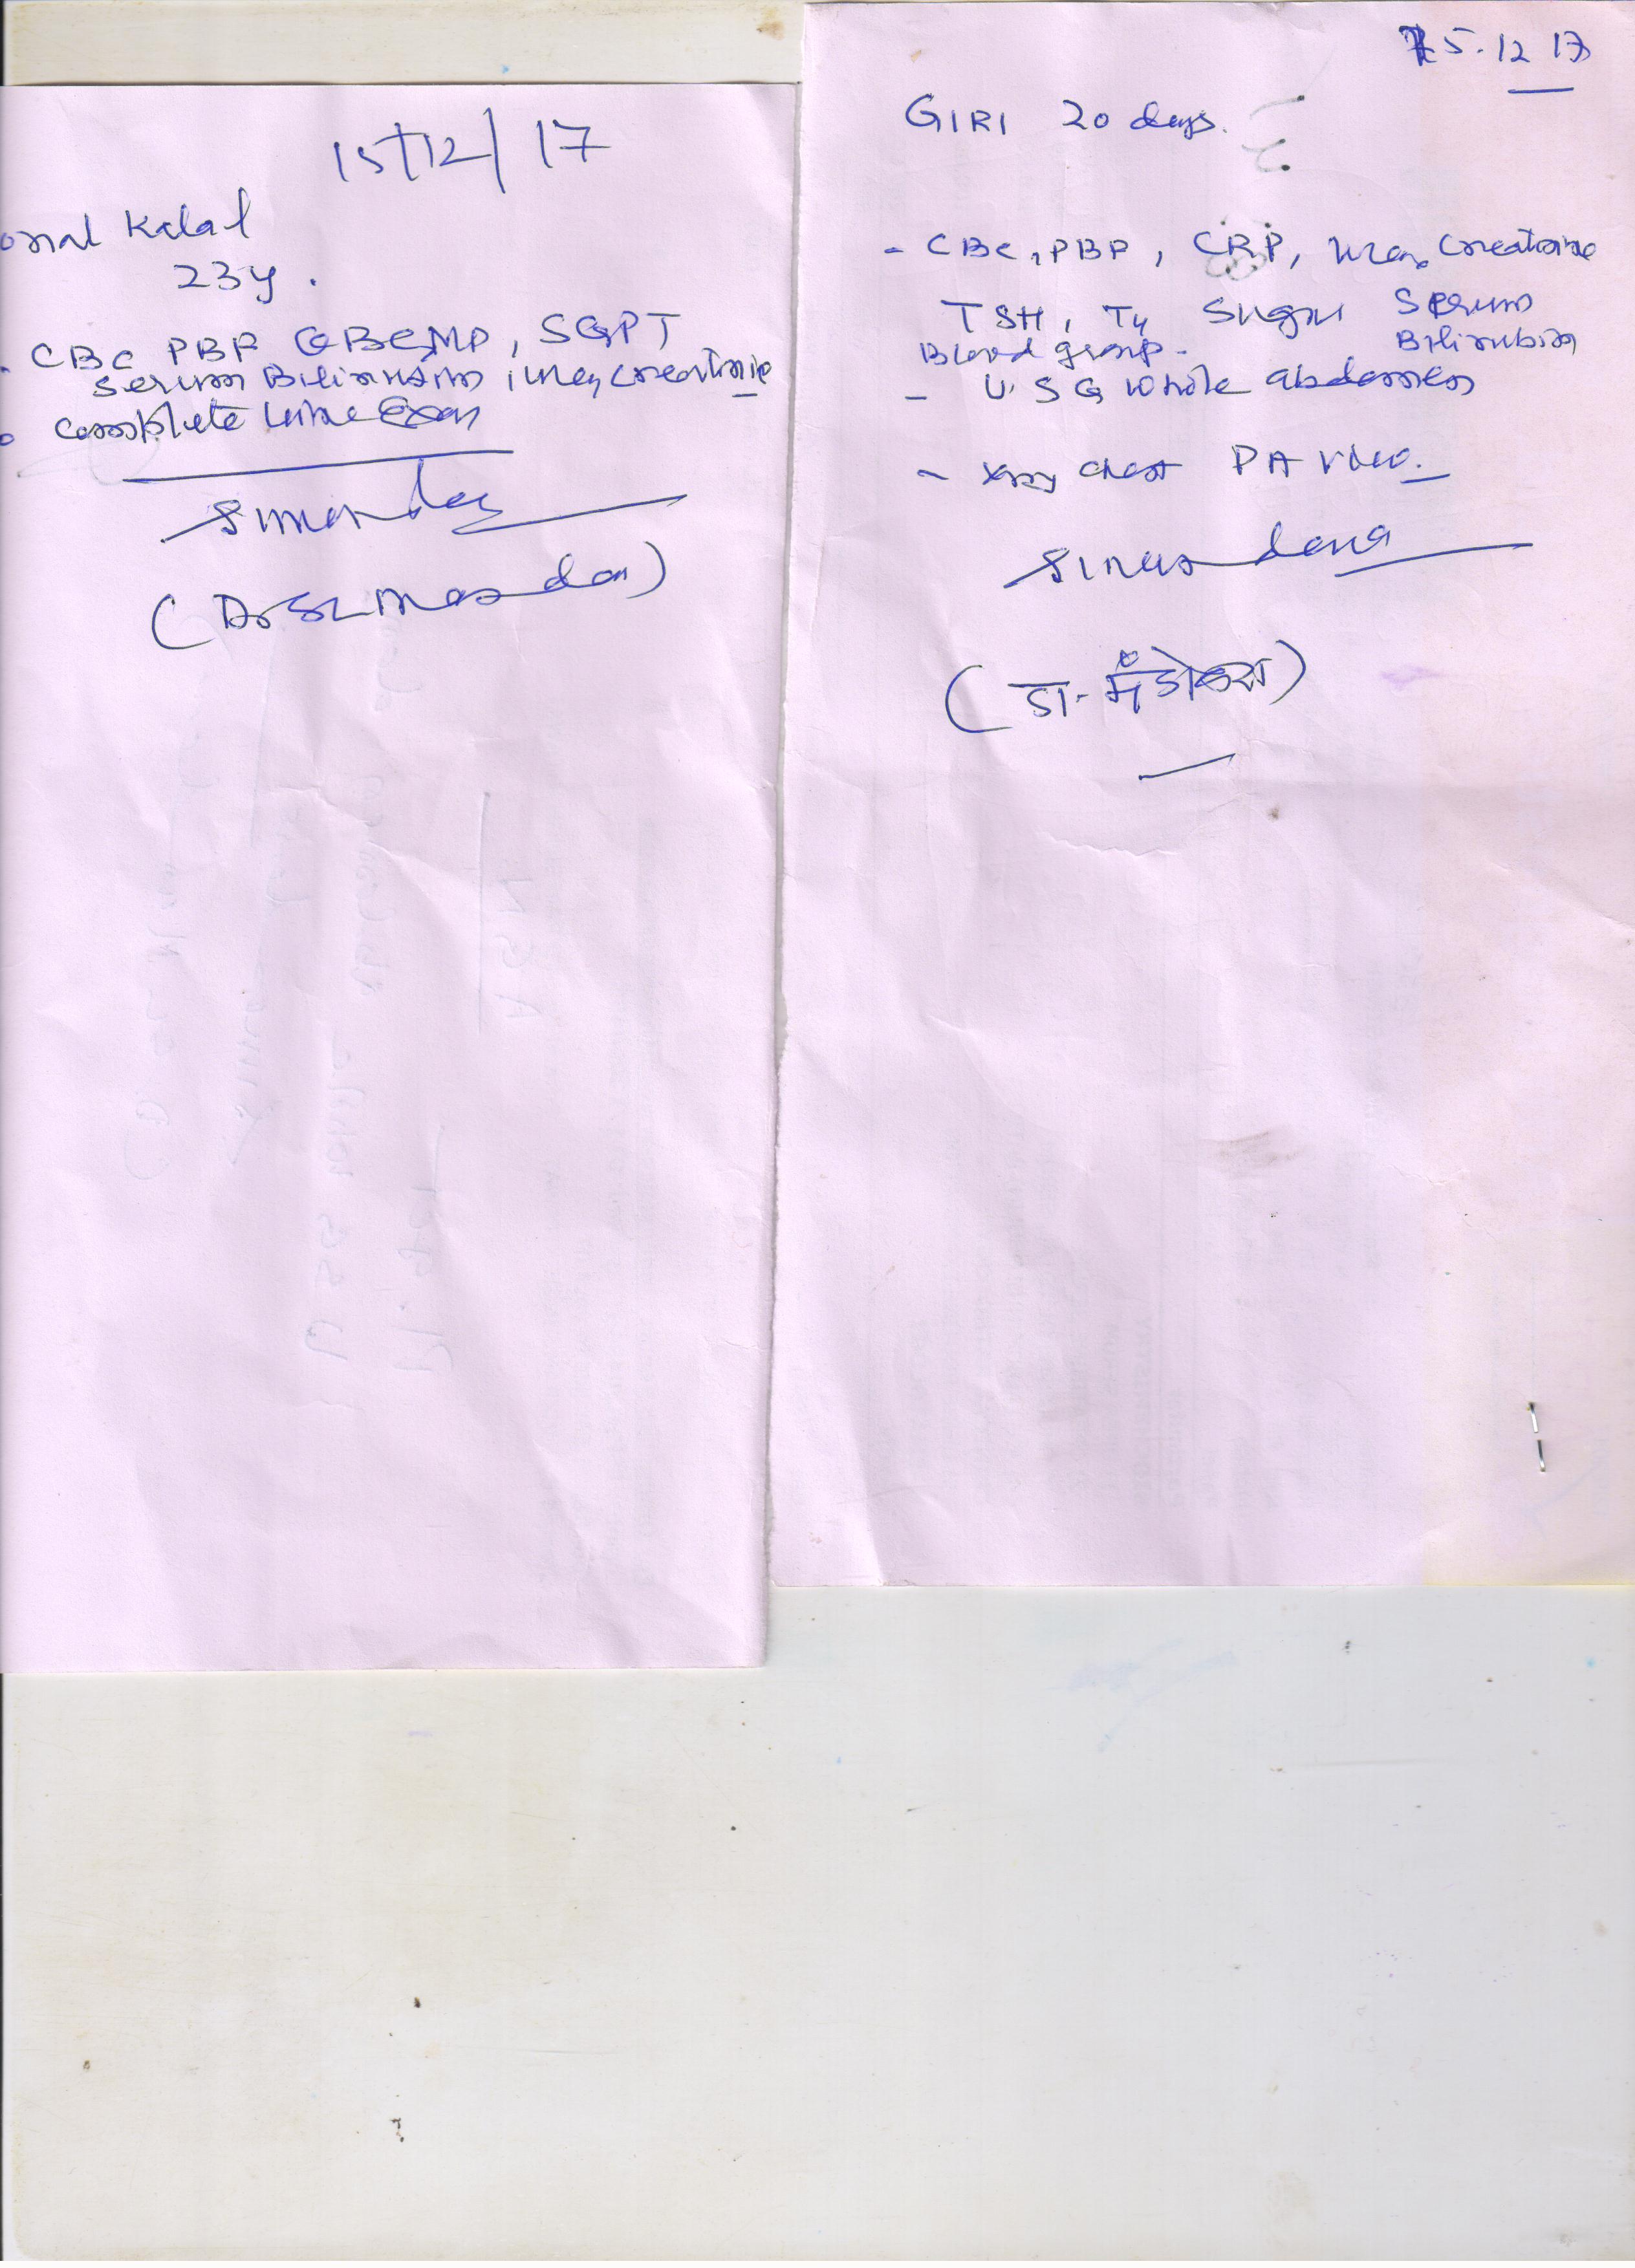 15/12/17
onal Kalal
23y.
- CBC PBF GBCMP, SGPT
Serum Bilirubin, Urea, Creatinine
complete Urine Exam
15.12 17
GIRI 20 days.
- CBC, PBP, CRP, Urea, Creatinine
TSH, T4 Sugar Serum
Blood group. Bilirubin
- U.S.G whole abdomen
- Xray chest PA view.